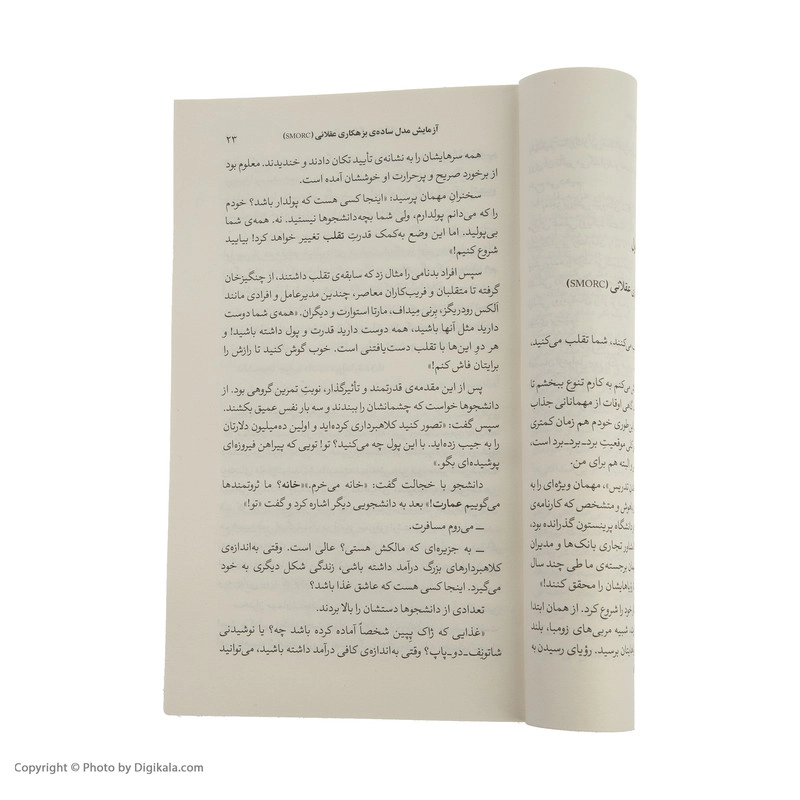 آزمایش مدل ساده‌ی بزهکاری عقلانی (SMORC) ۲۳
همه سرهایشان را به نشانه‌ی تأیید تکان دادند و خندیدند. معلوم بود
از برخورد صریح و پرحرارت او خوششان آمده است.
سخنرانِ مهمان پرسید: «اینجا کسی هست که پولدار باشد؟ خودم
را که می‌دانم پولدارم، ولی شما بچه‌دانشجوها نیستید. نه. همه‌ی شما
بی‌پولید. اما این وضع به‌کمک قدرتِ تقلب تغییر خواهد کرد! بیایید
شروع کنیم!»
سپس افراد بدنامی را مثال زد که سابقه‌ی تقلب داشتند، از چنگیزخان
گرفته تا متقلبان و فریب‌کاران معاصر، چندین مدیرعامل و افرادی مانند
آلکس رودریگز، بِرنی مِیداف، مارتا استوارت و دیگران. «همه‌ی شما دوست
دارید مثل آنها باشید، همه دوست دارید قدرت و پول داشته باشید! و
هر دوِ این‌ها با تقلب دست‌یافتنی است. خوب گوش کنید تا رازش را
برایتان فاش کنم!»
پس از این مقدمه‌ی قدرتمند و تأثیرگذار، نوبتِ تمرین گروهی بود. از
دانشجوها خواست که چشمانشان را ببندند و سه بار نفس عمیق بکشند.
سپس گفت: «تصور کنید کلاهبرداری کرده‌اید و اولین ده‌میلیون دلارتان
را به جیب زده‌اید. با این پول چه می‌کنید؟ تو! تویی که پیراهن فیروزه‌ای
پوشیده‌ای بگو.»
دانشجو با خجالت گفت: «خانه می‌خرم.»«خانه؟ ما ثروتمندها
می‌گوییم عمارت!» بعد به دانشجویی دیگر اشاره کرد و گفت «تو!»
ــ می‌روم مسافرت.
ــ به جزیره‌ای که مالکش هستی؟ عالی است. وقتی به‌اندازه‌ی
کلاهبردارهای بزرگ درآمد داشته باشی، زندگی شکل دیگری به خود
می‌گیرد. اینجا کسی هست که عاشق غذا باشد؟
تعدادی از دانشجوها دستشان را بالا بردند.
«غذایی که ژاک پِپین شخصاً آماده کرده باشد چه؟ یا نوشیدنی
شاتونِف‌ـ‌دو‌ـ‌پاپ؟ وقتی به‌اندازه‌ی کافی درآمد داشته باشید، می‌توانید
عقلانی (SMORC)
می‌کنند، شما تقلب می‌کنید،
می‌کنم به کارم تنوع ببخشم تا
گاهی اوقات از مهمانانی جذاب
این‌طوری خودم هم زمان کمتری
موقعیتِ برد‌ـ‌برد‌ـ‌برد است،
البته هم برای من.
تدریس»، مهمان ویژه‌ای را به
و متشخص که کارنامه‌ی
دانشگاه پرینستون گذرانده بود،
تجاری بانک‌ها و مدیران
برجسته‌ی ما طی چند سال
رؤیاهایشان را محقق کنند!»
خود را شروع کرد. از همان ابتدا
شبیه مربی‌های زومبا، بلند
برسید. رؤیای رسیدن به
Copyright © Photo by Digikala.com